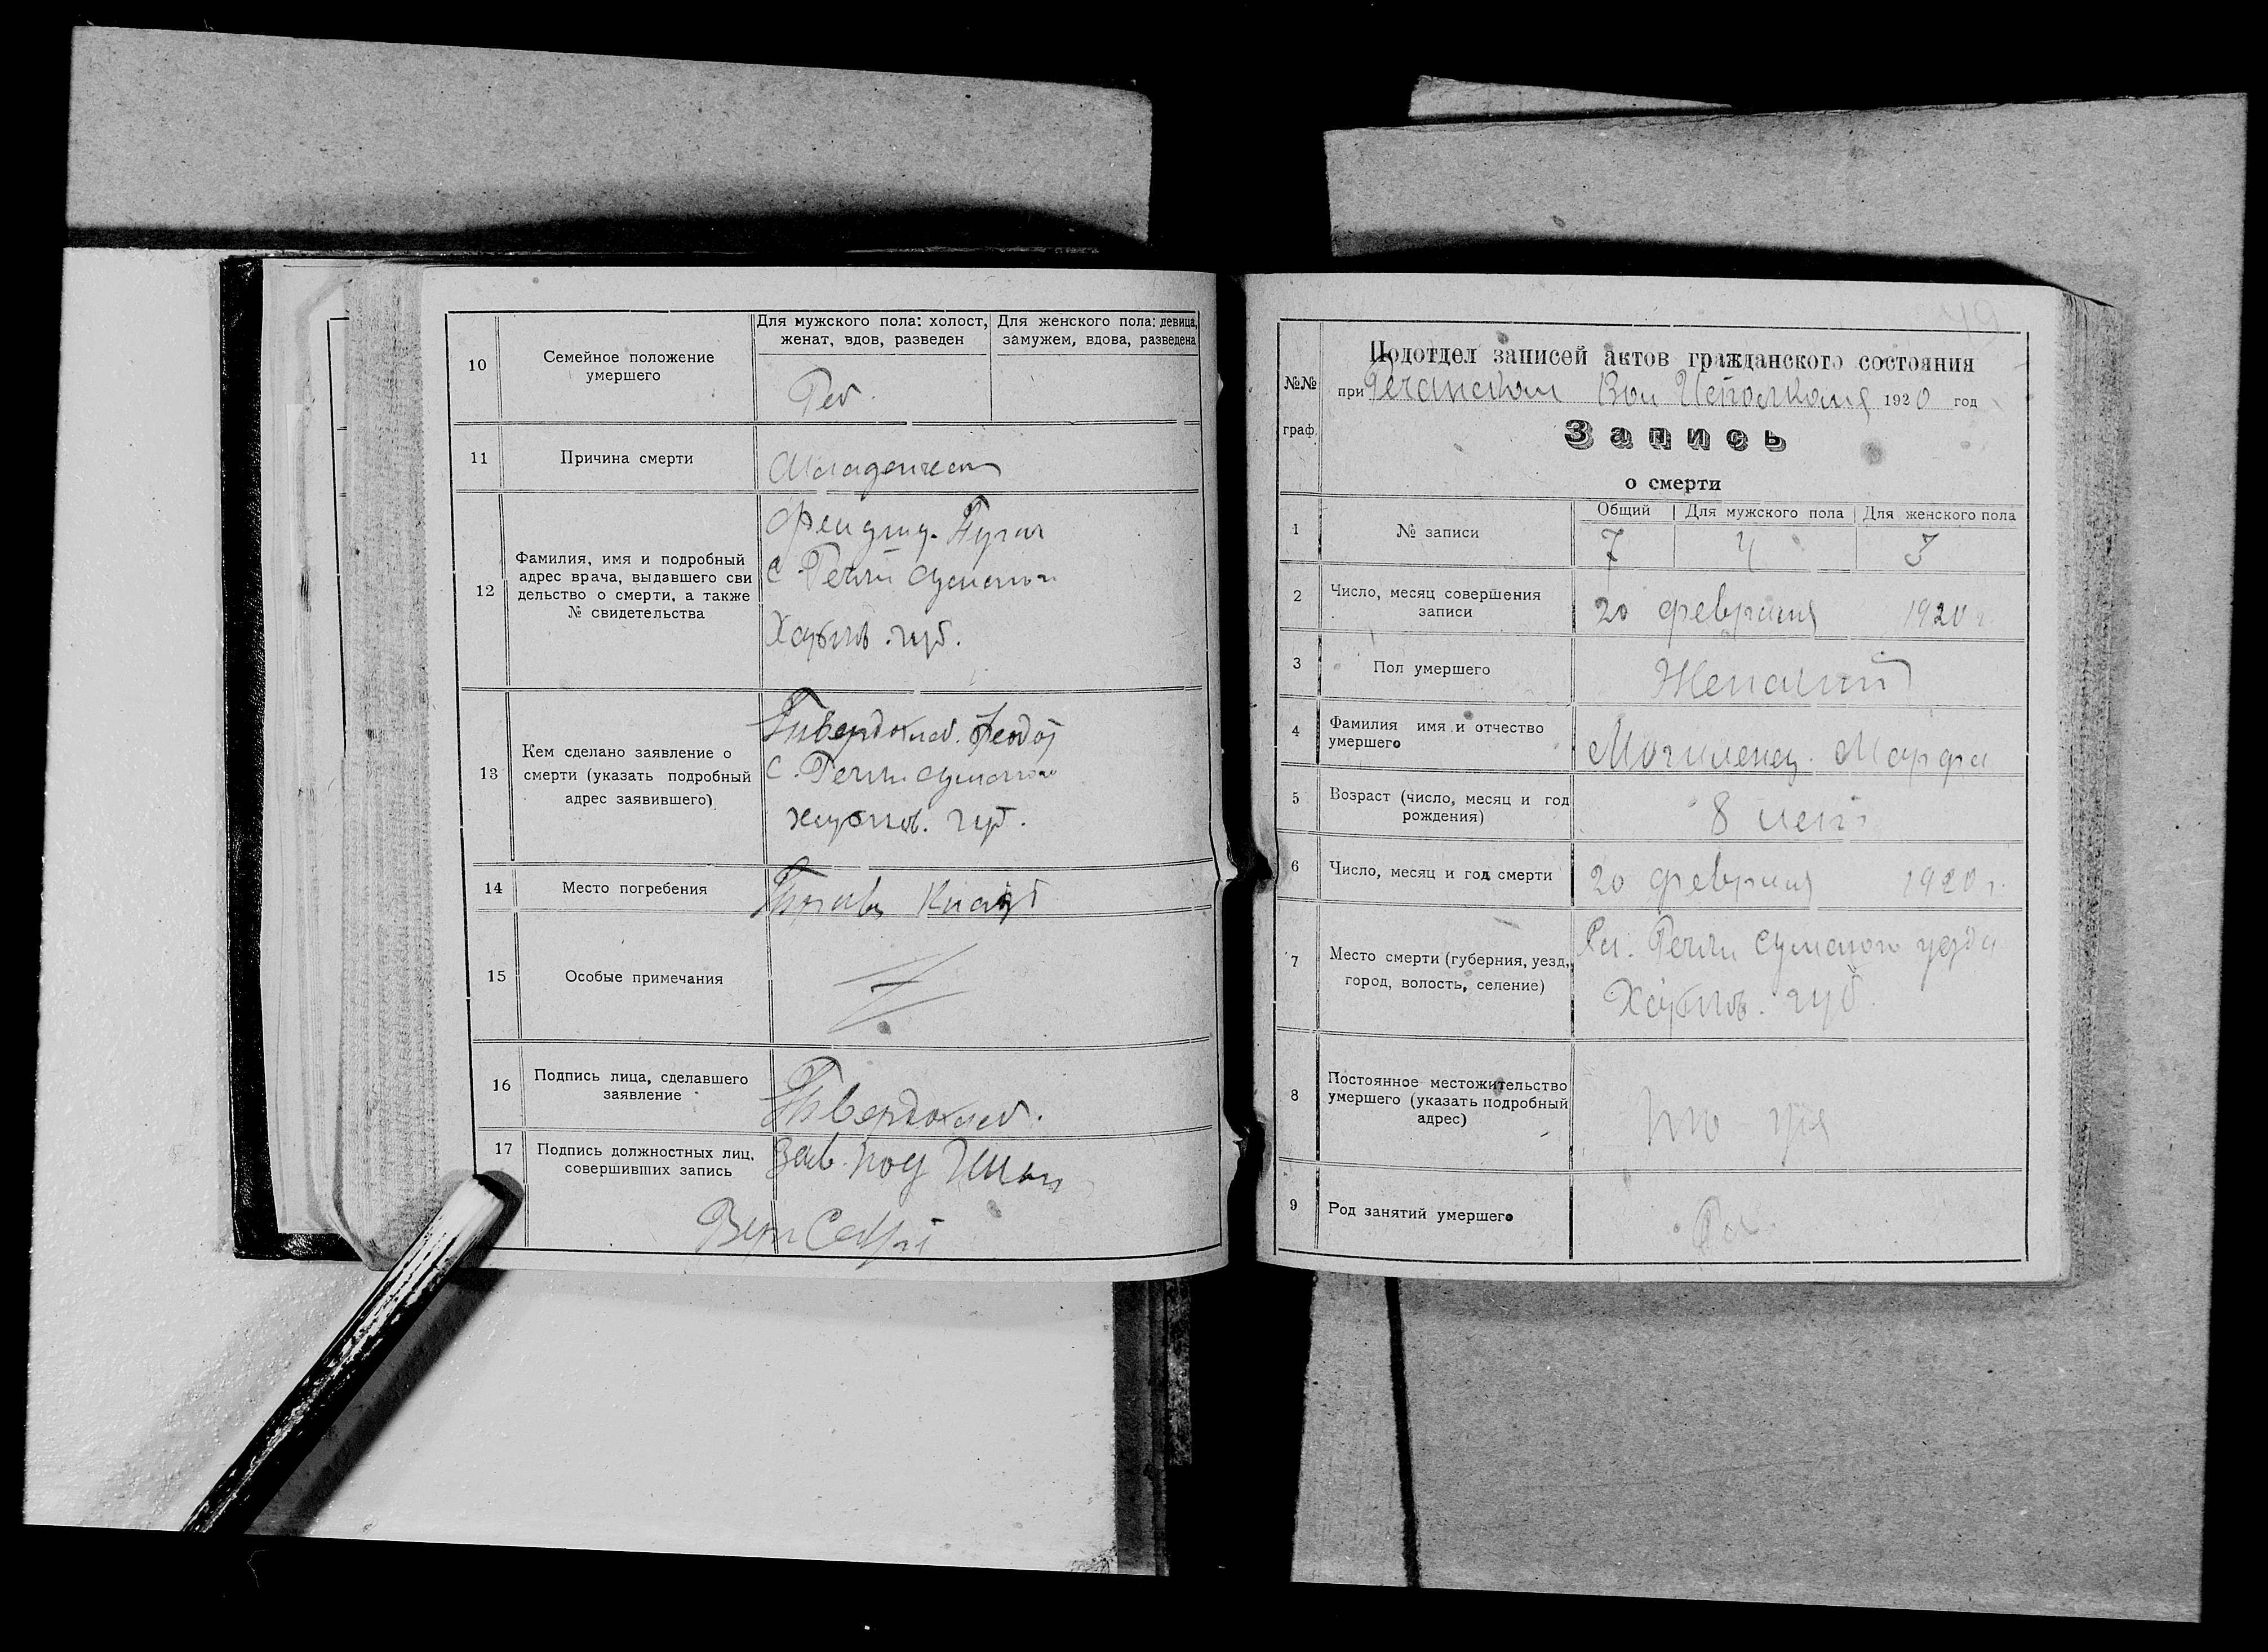 10
Семейное положение
умершего
Для мужского пола: холост,
женат, вдов, разведен
Для женского пола: девица,
замужем, вдова, разведена
Реб.
11
Причина смерти
12
Фамилия, имя и подробный
адрес врача, выдавшего сви
дельство о смерти, а также
№ свидетельства
с. Речки Сумского
Харьков. губ.
13
Кем сделано заявление о
смерти (указать подробный
адрес заявившего)
Твердохлеб. Феодос
с. Речки Сумского
Харьков. губ.
14
Место погребения
Кладб
15
Особые примечания
16
Подпись лица, сделавшего
заявление
Твердохлеб.
17
Подпись должностных лиц,
совершивших запись
Зав. под
49
№№
граф.
Подотдел записей актов гражданского состояния
при Речанском Вол Исполкоме 1920 год
Запись
о смерти
1
№ записи
Общий
Для мужского пола
Для женского пола
7
4
3
2
Число, месяц совершения
записи
20 февраля 1920 г.
3
Пол умершего
Женский
4
Фамилия имя и отчество
умершего
Могиленец. Марфа
5
Возраст (число, месяц и год
рождения)
8 лет
6
Число, месяц и год смерти
20 февраля 1920 г.
7
Место смерти (губерния, уезд,
город, волость, селение)
Сл. Речки Сумского уезда
Харьков. губ.
8
Постоянное местожительство
умершего (указать подробный
адрес)
9
Род занятий умершего